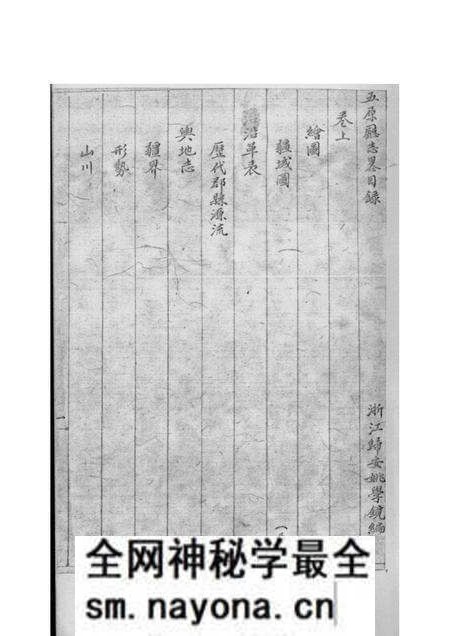 五原廳志畧目録
浙江歸安姚學鏡編
卷上
繪圖
疆域圖
沿革表
歷代郡縣源流
輿地志
疆界
形勢
山川
一
全网神秘学最全
sm.nayona.cn